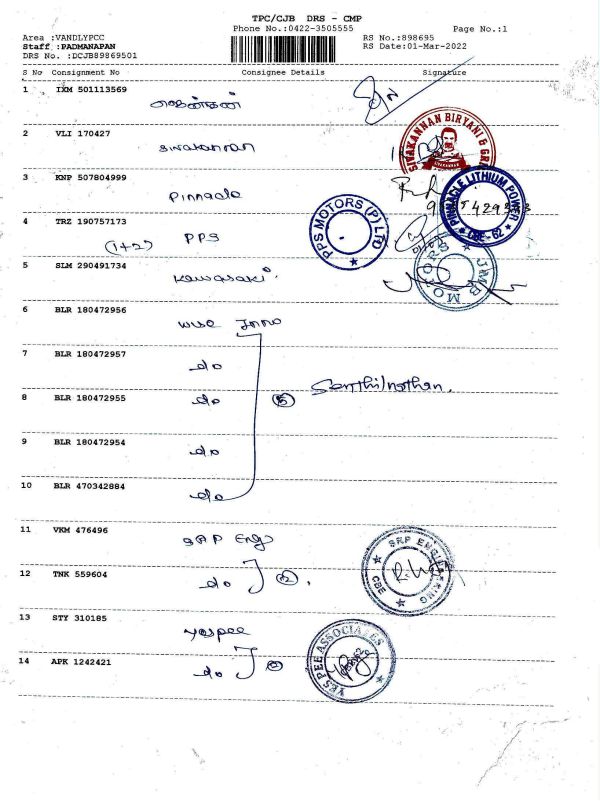 TPC/CJB DRS - CMP
Phone No.:0422-3505555
Page No.:1
Area :VANDLYPCC
RS No.:898695
Staff :PADMANAPAN
RS Date:01-Mar-2022
DRS No. :DCJB89869501
S No Consignment No Consignee Details Signature
1 IXM 501113569
2 VLI 170427
Sivakannan
SIVAKANNAN BIRYANI & GRI
3 KNP 507804999
Pinnacle
PINNACLE LITHIUM POWER
CBE-62
4 TRZ 190757173
(1+2) PPS
PPS MOTORS (P) LTD
5 SLM 290491734
Kawasaki
JMB MOTORS
6 BLR 180472956
wise Inno
7 BLR 180472957
do
8 BLR 180472955
do 5 Senthilnathan.
9 BLR 180472954
do
10 BLR 470342884
do
11 VKM 476496
SRP Engg
SRP ENGINEERING
CBE
12 TNK 559604
do 2
13 STY 310185
yespee
YES PEE ASSOCIATES
14 APK 1242421
do 2